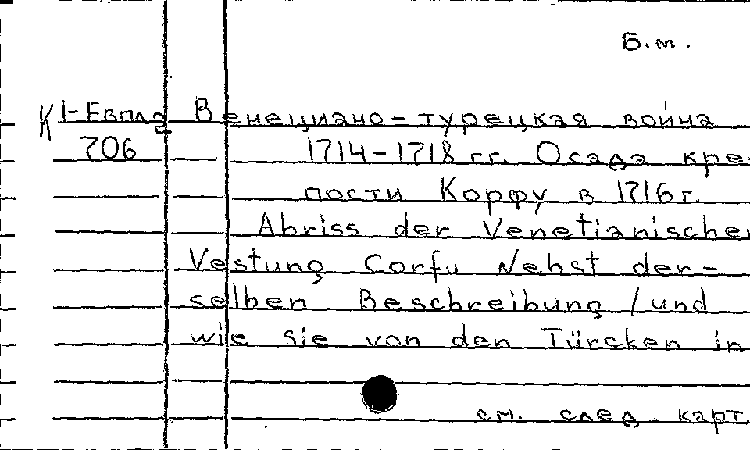 Б.м.
К 1-Евпл
706
Венециано-турецкая война
1714-1718 гг. Осада кре-
пости Корфу в 1716 г.
Abriss der Venetianischen
Vestung Corfu Nebst der-
selben Beschreibung / und
wie sie von den Türcken in
см. след. карт.